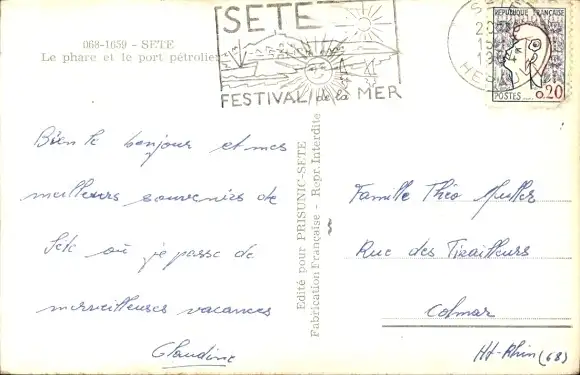 SETE
FESTIVAL de la MER
068-1659 - SETE
Le phare et le port pétrolier
REPUBLIQUE FRANÇAISE
POSTES
0,20
Bien le bonjour et mes
meilleurs souvenirs de
Sète où je passe de
merveilleuses vacances
Claudine
Edité pour PRISUNIC-SETE
Fabrication Française - Repr. Interdite
Famille Théo Muller
Rue des Tirailleurs
Colmar
Ht-Rhin (68)